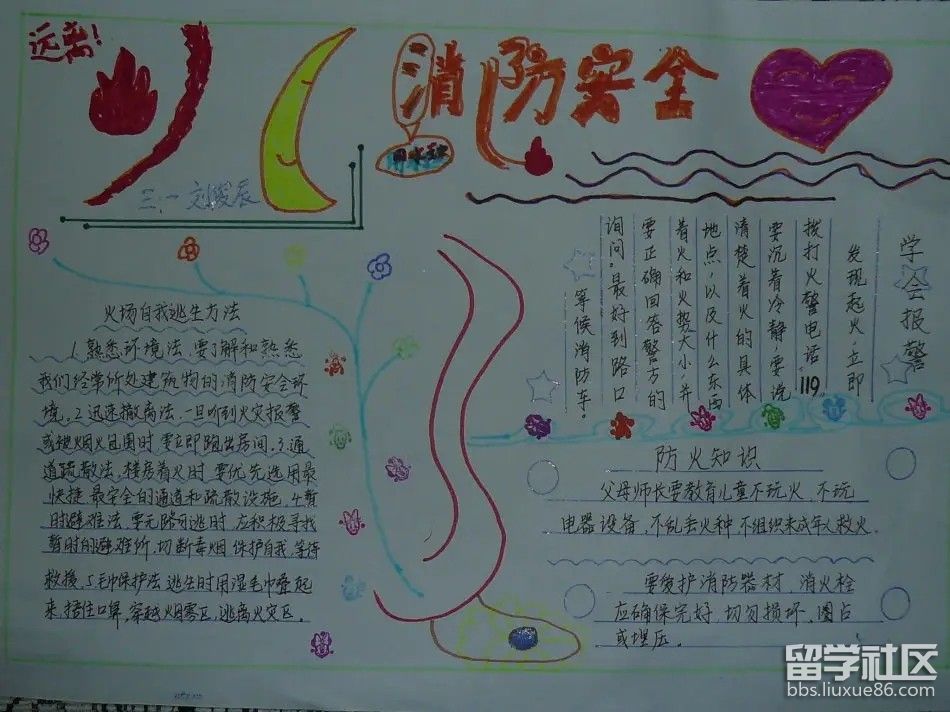 远离!
消防安全
三、一 刘峻辰
火场自我逃生方法
1.熟悉环境法,要了解和熟悉
我们经常所处建筑物的消防安全环
境。2.迅速撤离法,一旦听到火灾报警
或被烟火包围时,要立即跑出房间。3.通
道疏散法,楼房着火时,要优先选用最
快捷、最安全的通道和疏散设施。4.暂
时避难法,要无路可逃时,应积极寻找
暂时的避难所,切断毒烟,保护自我,等待
救援。5.毛巾保护法,逃生时用湿毛巾叠起
来,捂住口鼻,穿越烟雾区,逃离火灾区。
学会报警
发现起火,立即
拨打火警电话“119”
要沉着冷静,要说
清楚着火的具体
地点,以及什么东西
着火和火势大小,并
要正确回答警方的
询问。最好到路口
等候消防车。
防火知识
父母师长要教育儿童不玩火、不玩
电器设备、不乱丢火种、不组织未成年人救火。
要爱护消防器材、消火栓
应确保完好,切勿损坏、圈占
或埋压。
留学社区
bbs.liuxue86.com